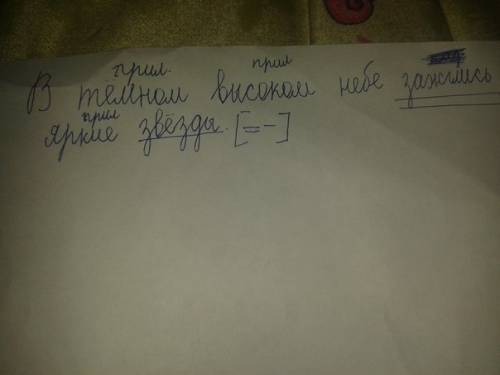 прил. прил
В тёмном высоком небе зажглись
прил
яркие звёзды. [=-]